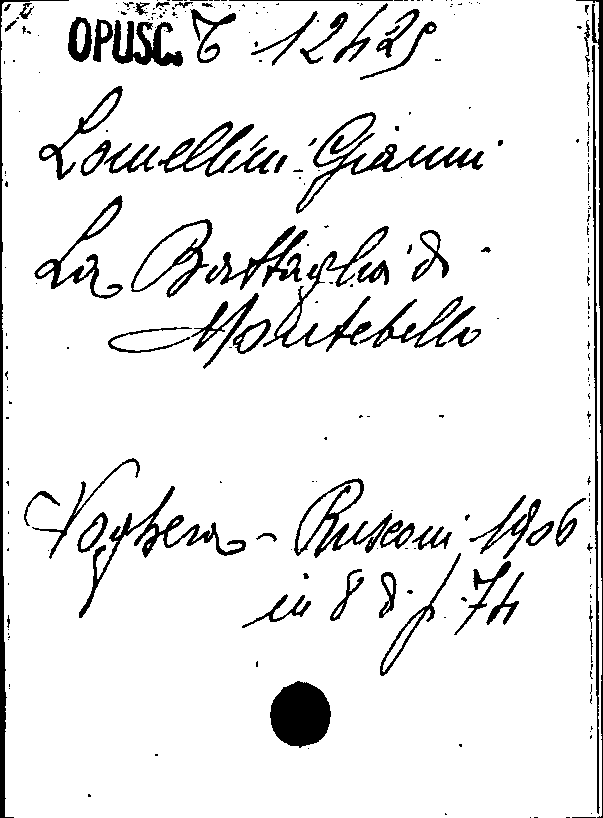 OPUSC. C 12425
Lomellini Gianni
La Battaglia di
Montebello
Voghera - Rusconi, 1906
in 8 di p. 74